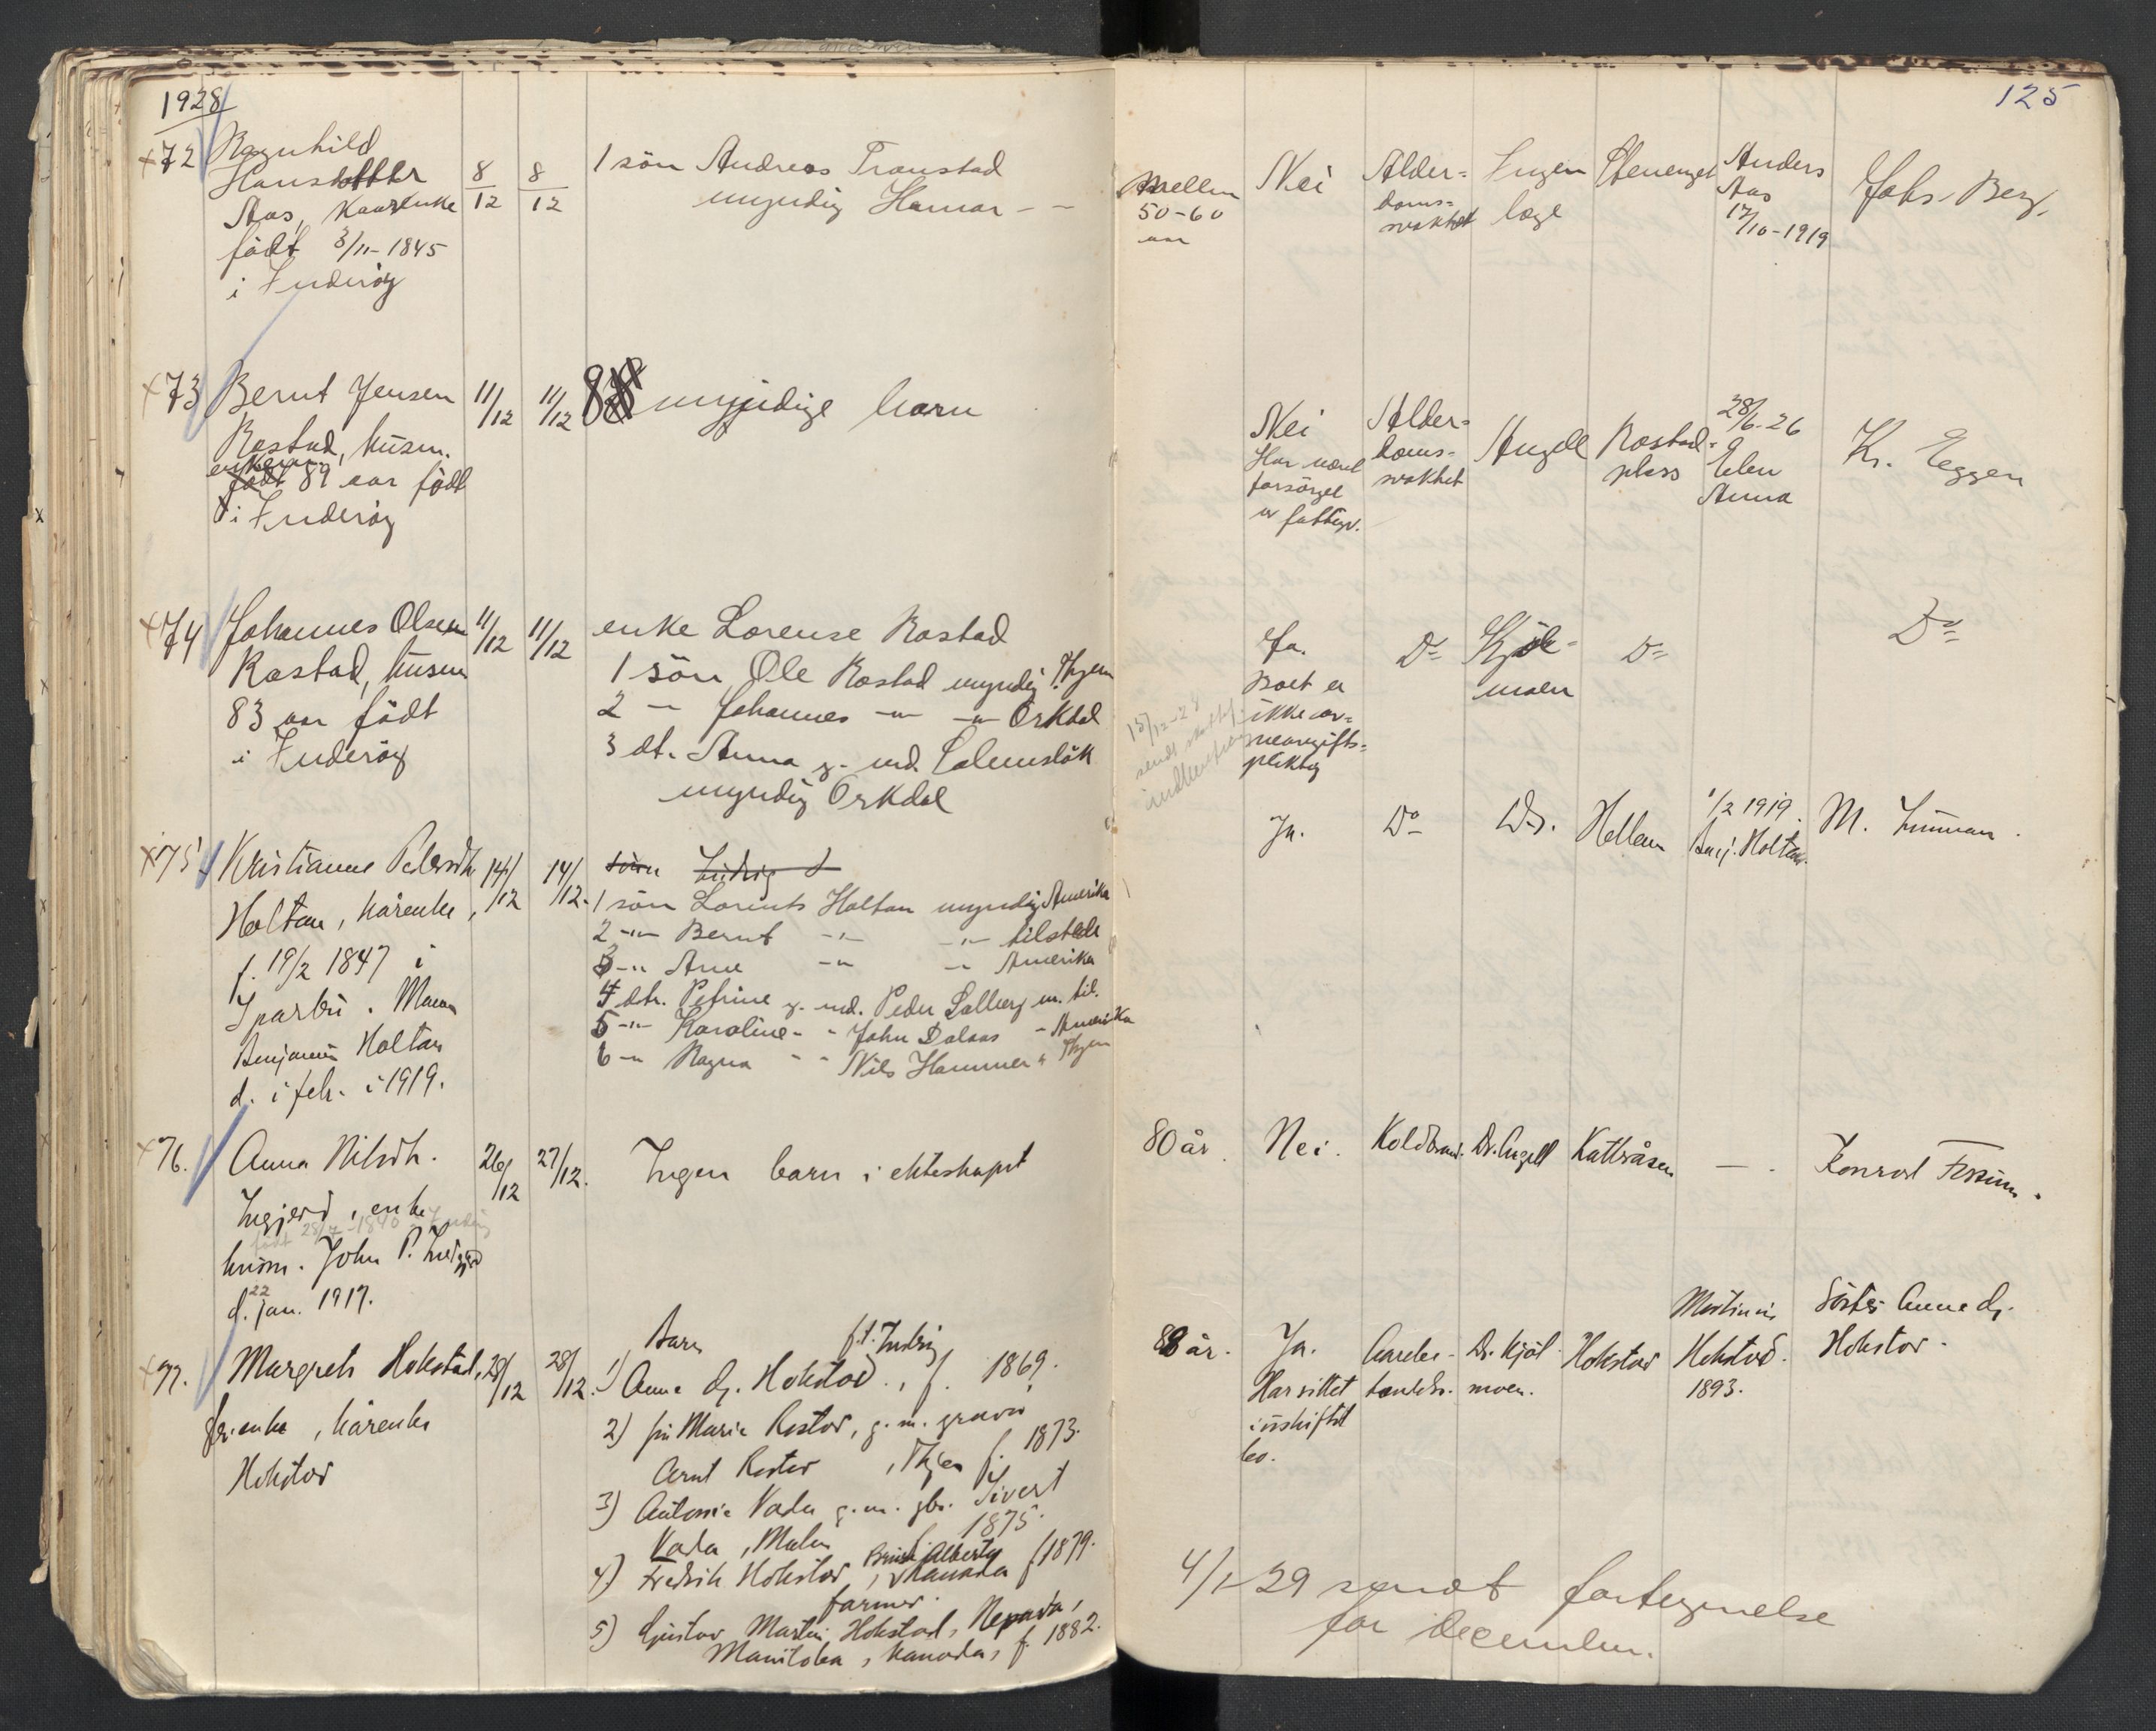 1928
72 Ragnhild
Hansdatter
Aas, kaarenke
født 3/11-1845
i Inderøy
8/12
8/12
1 sön Andreas Transtad
myndig Hamar - -
73 Bernt Jensen
Rostad, husm.
enkem.
født 89 aar født
i Inderøy
11/12
11/12
8 myndige barn
74 Johannes Olsen
Rostad, husm
83 aar født
i Inderøy
11/12
11/12
enke Lorense Rostad
1 sön Ole Rostad myndig Thjem
2 -"- Johannes -"- -"- Orkdal
3 dt. Anna g. md.
myndig Orkdal
75 Kristianne Pedersdtr.
Holtan, kårenke,
f. 19/2 1847 i
Sparbu. Mann
Benjamin Holtan
d. i feb. i 1919.
14/12
14/12.
sönn Ludvig
1 sön Lorents Holtan myndig Amerika
2 -"- Bernt -"- -"- tilstede
3 -"- Arne -"- -"- Amerika
4 dtr. Petrine g. md. Peder Salberg m. til.
5 -"- Karoline - - John Dalaas - Amerika
6 -"- Ragna - - Nils Hammer " Thjem
76. Anna Nilsdtr.
Ingjerd, enke
født 28/7-1840 Inderøy
husm. John P. Ingjerd
d. 22 jan. 1917.
26/12
27/12.
Ingen barn i ekteskapet
77. Margrete Hokstad,
fhv. enke, kårenke
Hokstad
28/12
28/12.
Barn
1) Anna Dj. Hokstad, f. f. t. Inderøy 1869.
2) Marie Rostad, g. m.
Arnt Rostad, Thjem f. 1873.
3) Antonie Vada g. m. gbr. Sivert
Vada, Malm f. 1875.
4) Fredrik Hokstad, Alberta Kanada f 1879.
farmer.
5) Gustav Martin Hokstad, Nepavta,
Manitoba, Kanada, f. 1882.
125
Mellem
50-60
aar
Nei
Alder-
doms-
svakhet
Ingen
læge
Stenenget
Anders
Aas
17/10-1919
Johs. Berg.
Nei
Har været
forsörget
av fattigv.
Alder-
doms-
svakhet
Angell
Rostad-
plass
28/6-26
Elen
Anna
Kr. Eggen
Ja.
Boet er
ikke ar-
veavgifts-
pliktig
15/12-28
sendt
Do
Kjöl-
moen
Do
Do
Ja.
Do
Do.
Hellem
1/2 1919.
Benj. Holtan.
M.
80 år.
Nei.
Koldbrand.
Dr. Angell
Kattråsen
- .
Konrad Forsum.
88 år.
Ja.
Har sittet
i uskiftet
bo.
Aarder-
Dr. Kjöl-
moen.
Hokstad
Martinus
Hokstad.
1893.
Söster Anna Dj.
Hokstad.
4/1-29 sendt fortegnelse
for December.